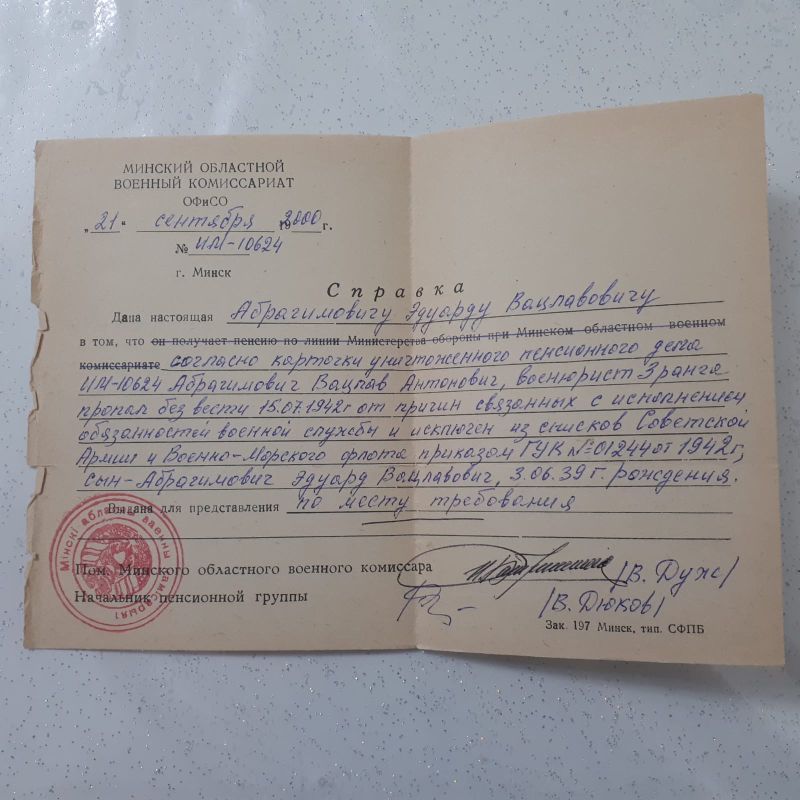 МИНСКИЙ ОБЛАСТНОЙ
ВОЕННЫЙ КОМИССАРИАТ
ОФиСО
„21“ сентября 2000 г.
№ ИМ-10624
г. Минск
Справка
Дана настоящая Абрагимовичу Эдуарду Вацлавовичу
в том, что он получает пенсию по линии Министерства обороны при Минском областном военном
комиссариате согласно карточки уничтоженного пенсионного дела
ИМ-10624 Абрагимович Вацлав Антонович, военюрист 3ранга
пропал без вести 15.07.1942г от причин связанных с исполнением
обязанностей военной службы и исключен из списков Советской
Армии и Военно-Морского флота приказом ГУК №01244 от 1942г,
сын-Абрагимович Эдуард Вацлавович, 3.06.39 г. рождения.
Выдана для представления по месту требования
Мінскі абласны ваенны камісарыят
Пом. Минского областного военного комиссара /В. Дужс/
Начальник пенсионной группы /В. Дюков/
Зак. 197 Минск, тип. СФПБ